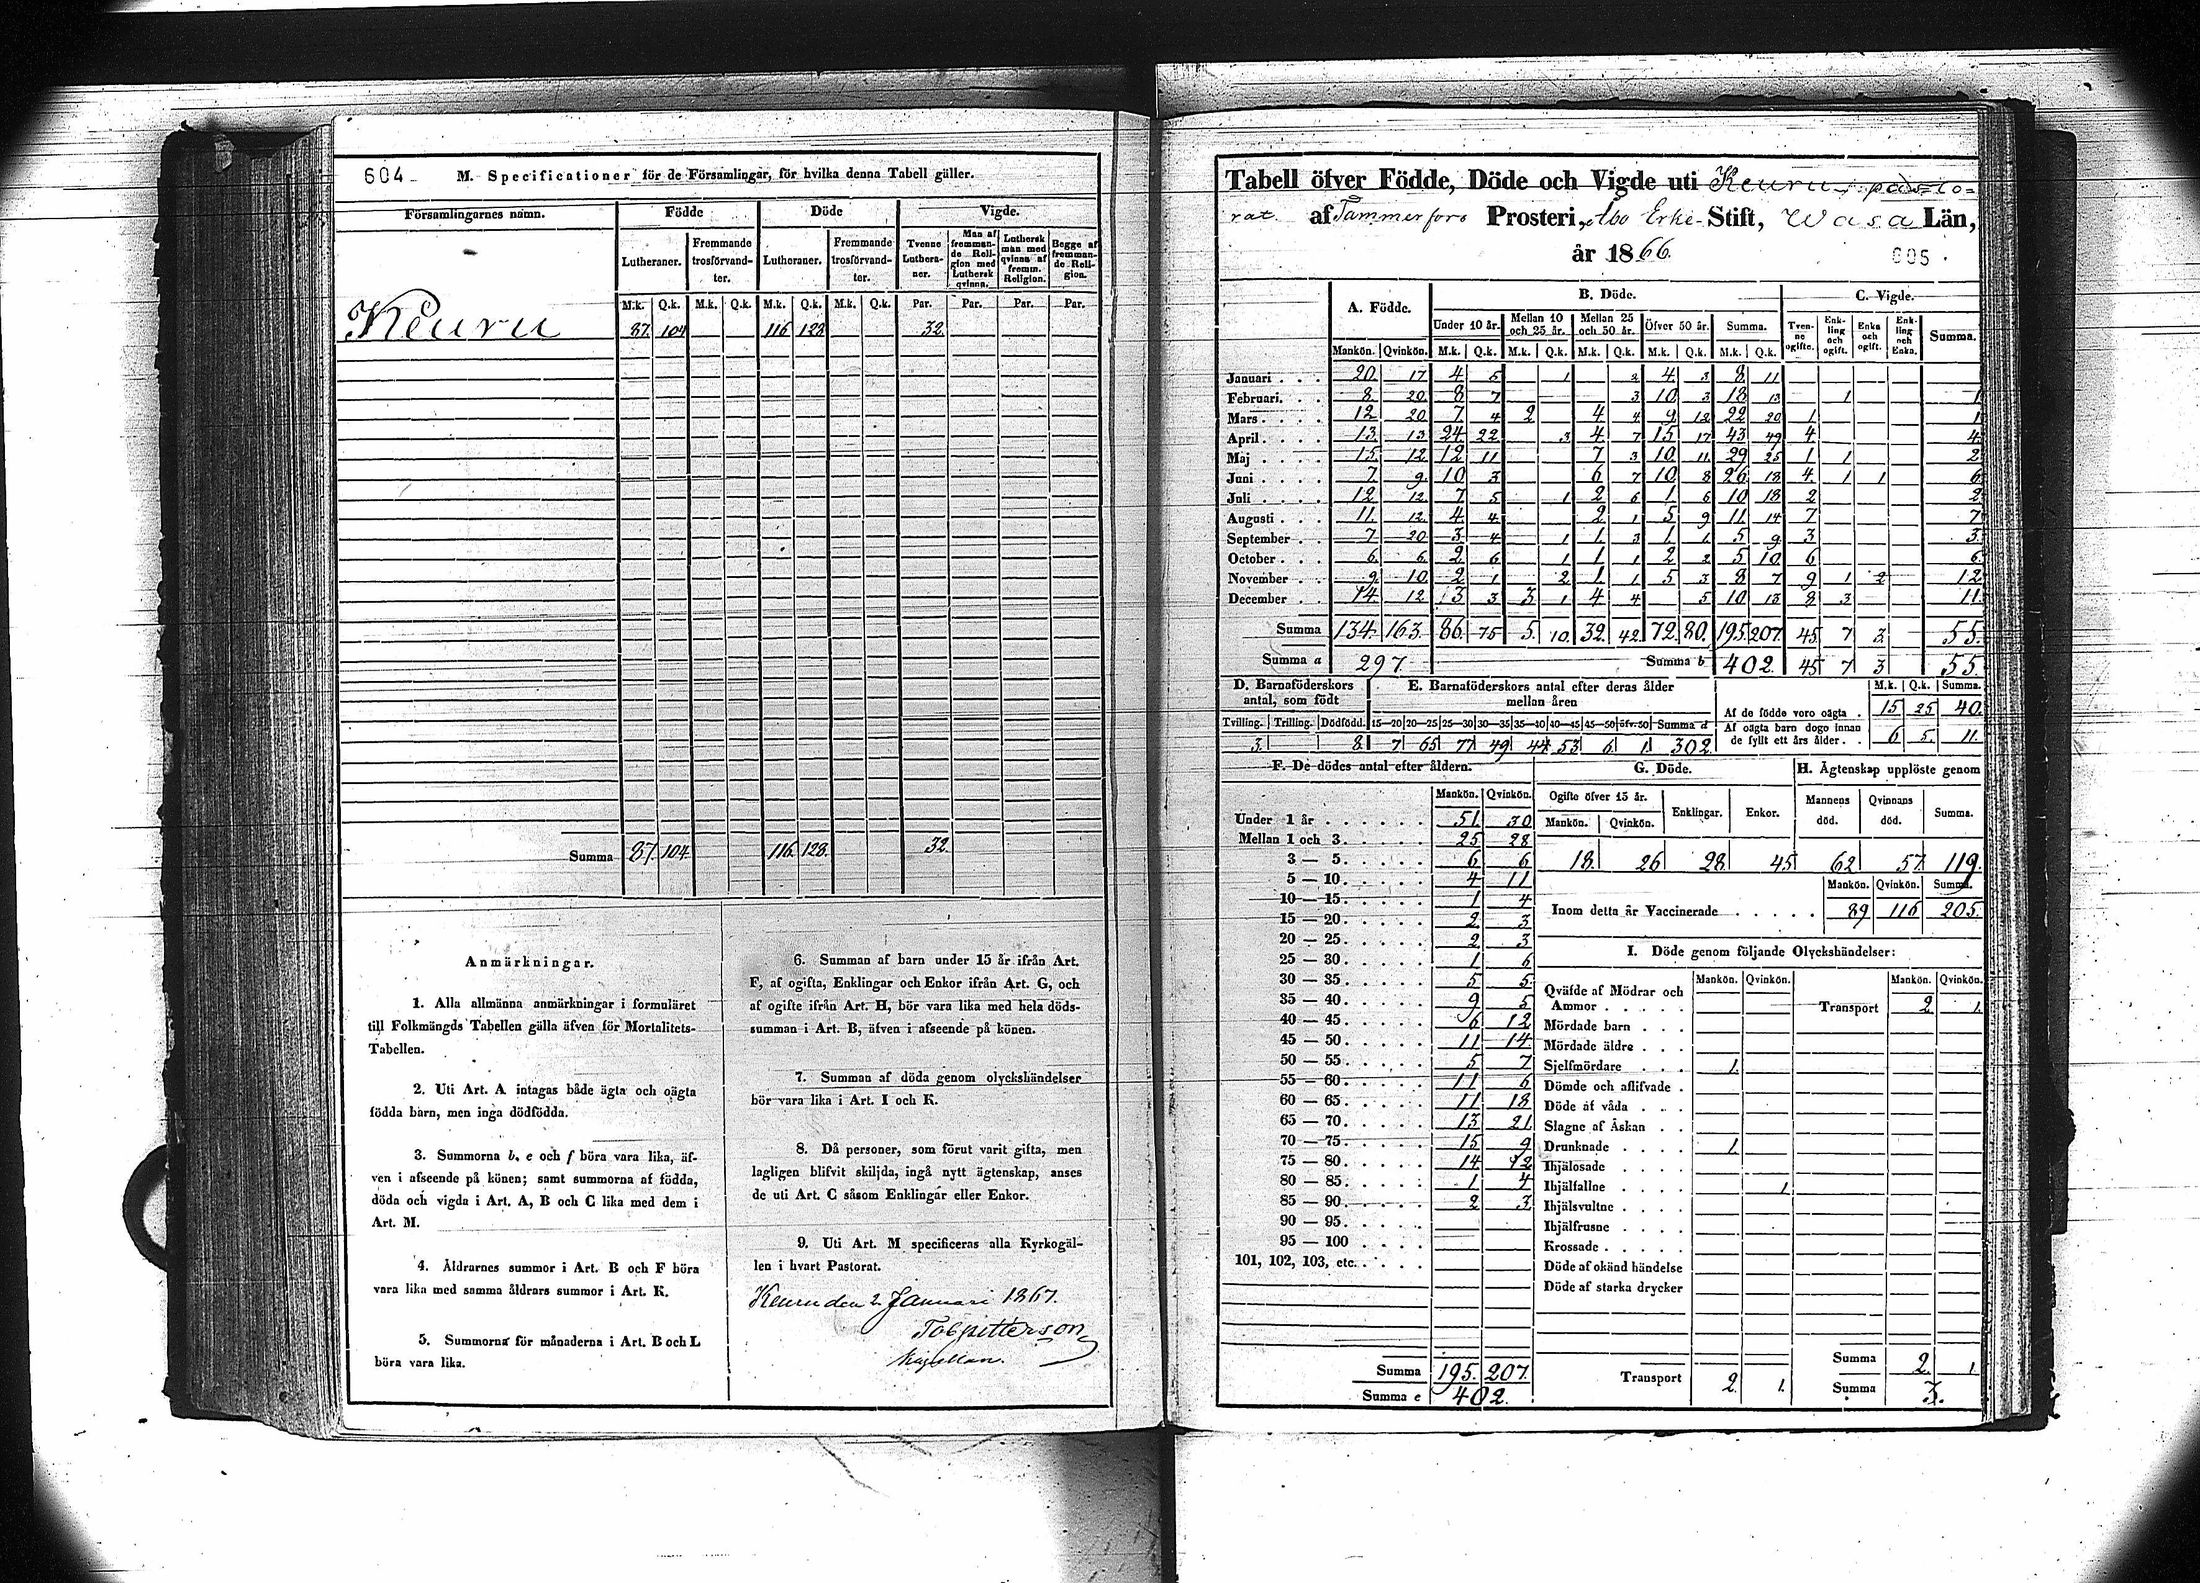 604 M. Specificationer för de Församlingar, för hvilka denna Tabell gäller.
Församlingarnes namn. Födde Döde Vigde.
Lutheraner. Fremmande trosförvandter. Lutheraner. Fremmande trosförvandter. Tvenne Lutheraner. Man af fremmande Religion med Luthersk qvinna. Luthersk man med qvinna af fremm. Religion. Begge af fremmande Religion.
M.k. Q.k. M.k. Q.k. M.k. Q.k. M.k. Q.k. Par. Par. Par. Par.
Keuru 87. 104 116 128 32.
Summa 87. 104 116. 128. 32.
Anmärkningar.
1. Alla allmänna anmärkningar i formuläret
till Folkmängds Tabellen gälla äfven för Mortalitets-
Tabellen.
2. Uti Art. A intagas både ägta och oägta
födda barn, men inga dödfödda.
3. Summorna b, e och f böra vara lika, äf-
ven i afseende på könen; samt summorna af födda,
döda och vigda i Art. A, B och C lika med dem i
Art. M.
4. Åldrarnes summor i Art. B och F böra
vara lika med samma åldrars summor i Art. K.
5. Summorna för månaderna i Art. B och L
böra vara lika.
6. Summan af barn under 15 år ifrån Art.
F, af ogifta, Enklingar och Enkor ifrån Art. G, och
af ogifte ifrån Art. H, bör vara lika med hela döds-
summan i Art. B, äfven i afseende på könen.
7. Summan af döda genom olyckshändelser
bör vara lika i Art. I och K.
8. Då personer, som förut varit gifta, men
lagligen blifvit skiljda, ingå nytt ägtenskap, anses
de uti Art. C såsom Enklingar eller Enkor.
9. Uti Art. M specificeras alla Kyrkogäl-
len i hvart Pastorat.
Keuru den 2 Januari 1867.
Kapellan.
Tabell öfver Födde, Döde och Vigde uti Keuru pasto=
rat af Tammerfors Prosteri, Åbo Erke- Stift, Wasa Län,
år 1866.
605.
A. Födde. B. Döde. C. Vigde.
Under 10 år. Mellan 10 och 25 år. Mellan 25 och 50 år. Öfver 50 år. Summa. Tvenne ogifte. Enkling och ogift. Enka och ogift. Enkling och Enka. Summa.
Mankön. Qvinkön. M.k. Q.k. M.k. Q.k. M.k. Q.k. M.k. Q.k. M.k. Q.k.
Januari . . . 20. 17 4 5 1 2 4 3 8 11
Februari. . . 8 20 8 7 3 10 3 18 13 1 1
Mars . . . . 12 20 7 4 2 4 4 9 12 22 20 1 1
April . . . . 13 13 24 22 3 4 7 15 17 43 49 4 4
Maj . . . . 15 12 12 11 7 3 10 11 29 25 1 1 2
Juni . . . . 7 9 10 3 6 7 10 8 26 18 4 1 1 6
Juli . . . . 12 12 7 5 1 2 6 1 6 10 18 2 2
Augusti . . . 11 12 4 4 2 1 5 9 11 14 7 7
September . . 7 20 3 4 1 1 3 1 1 5 9 3 3
October . . . 6 6 2 6 1 1 1 2 2 5 10 6 6
November . . 9 10 2 1 2 1 1 5 3 8 7 9 1 2 12
December . . 14 12 3 3 3 1 4 4 5 10 13 8 3 11
Summa 134. 163. 86. 75 5. 10. 32. 42. 72. 80. 195. 207. 45 7 3. 55.
Summa a 297 Summa b 402. 45 7 3 55
D. Barnaföderskors antal, som födt E. Barnaföderskors antal efter deras ålder mellan åren M.k. Q.k. Summa.
Tvilling. Trilling. Dödfödd. 15—20 20—25 25—30 30—35 35—40 40—45 45—50 öfv. 50 Summa d
3. 8. 7 65 77 49 44 53 6 1 302.
Af de födde voro oägta . 15 25 40.
Af oägta barn dogo innan de fyllt ett års ålder . . 6 5. 11.
F. De dödes antal efter åldern. G. Döde. H. Ägtenskap upplöste genom
Mankön. Qvinkön.
Under 1 år . . . . . . 51. 30
Mellan 1 och 3. . . . . . 25 28
3 — 5. . . . . . 6 6
5 — 10. . . . . . 4 11
10 — 15. . . . . . 1 4
15 — 20. . . . . . 2 3
20 — 25. . . . . . 2 3
25 — 30. . . . . . 1 6
30 — 35. . . . . . 5 5
35 — 40. . . . . . 9 5
40 — 45. . . . . . 6 12
45 — 50. . . . . . 11 14
50 — 55. . . . . . 5 7
55 — 60. . . . . . 11 6
60 — 65. . . . . . 11 18
65 — 70. . . . . . 13 21
70 — 75. . . . . . 15 9
75 — 80. . . . . . 14 12
80 — 85. . . . . . 1 4
85 — 90. . . . . . 2 3
90 — 95. . . . . .
95 — 100 . . . . .
101, 102, 103, etc. . . . .
Summa 195. 207.
Summa e 402.
Ogifte öfver 15 år. Enklingar. Enkor. Mannens död. Qvinnans död. Summa.
Mankön. Qvinkön.
18. 26 28 45 62 57 119.
Mankön. Qvinkön. Summa.
Inom detta år Vaccinerade . . . . . 89 116 205.
I. Döde genom följande Olyckshändelser:
Mankön. Qvinkön. Mankön. Qvinkön.
Qväfde af Mödrar och
Ammor . . . . . Transport 2 1.
Mördade barn . . .
Mördade äldre . . .
Sjelfmördare . . . 1.
Dömde och aflifvade .
Döde af våda . . .
Slagne af Åskan . .
Drunknade . . . . 1.
Ihjälosade . . . .
Ihjälfallne . . . . 1
Ihjälsvultne . . . .
Ihjälfrusne . . . .
Krossade . . . . .
Döde af okänd händelse
Döde af starka drycker
Transport 2. 1. Summa 2. 1.
Summa 3.